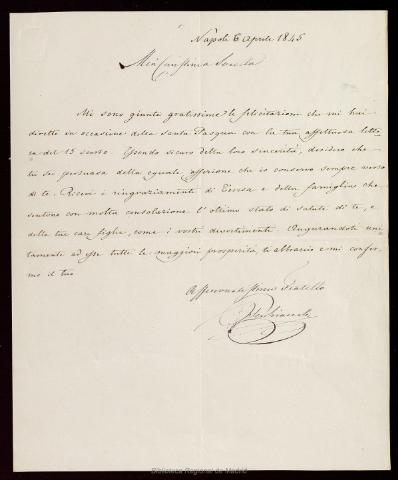 Napoli 6 Aprile 1845
Mia Carissima Sorella
Mi sono giunte gratissime le felicitazioni che mi hai
dirette in occasione della santa Pasqua con la tua affettuosa lette
ra del 15 scorso. Essendo sicuro della loro sincerità, desidero che
tu sii persuasa della eguale affezione che io conservo sempre verso
di te. Ricevi i ringraziamenti di Teresa e della famiglia che
sentono con molta consolazione l'ottimo stato di salute di te, e
delle tue care figlie, come i vostri divertimenti. Augurandoti uni
tamente ad esse tutte le maggiori prosperità, ti abbraccio e mi confer
mo il tuo
Affezionatissimo Fratello
Biblioteca Regional de Madrid